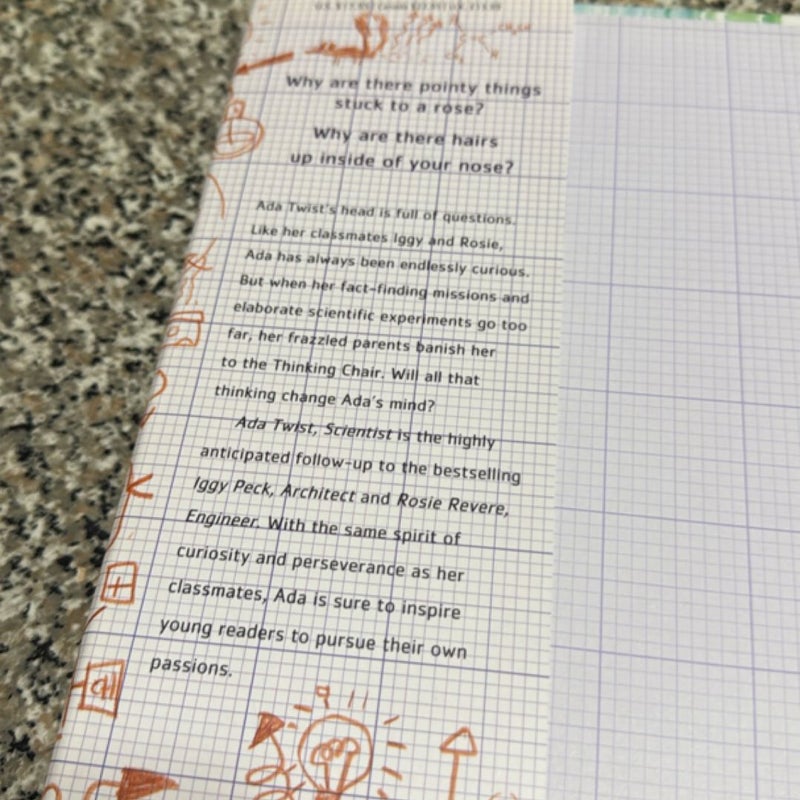 Why are there pointy things
stuck to a rose?
Why are there hairs
up inside of your nose?
Ada Twist's head is full of questions.
Like her classmates Iggy and Rosie,
Ada has always been endlessly curious.
But when her fact-finding missions and
elaborate scientific experiments go too
far, her frazzled parents banish her
to the Thinking Chair. Will all that
thinking change Ada's mind?
Ada Twist, Scientist is the highly
anticipated follow-up to the bestselling
Iggy Peck, Architect and Rosie Revere,
Engineer. With the same spirit of
curiosity and perseverance as her
classmates, Ada is sure to inspire
young readers to pursue their own
passions.